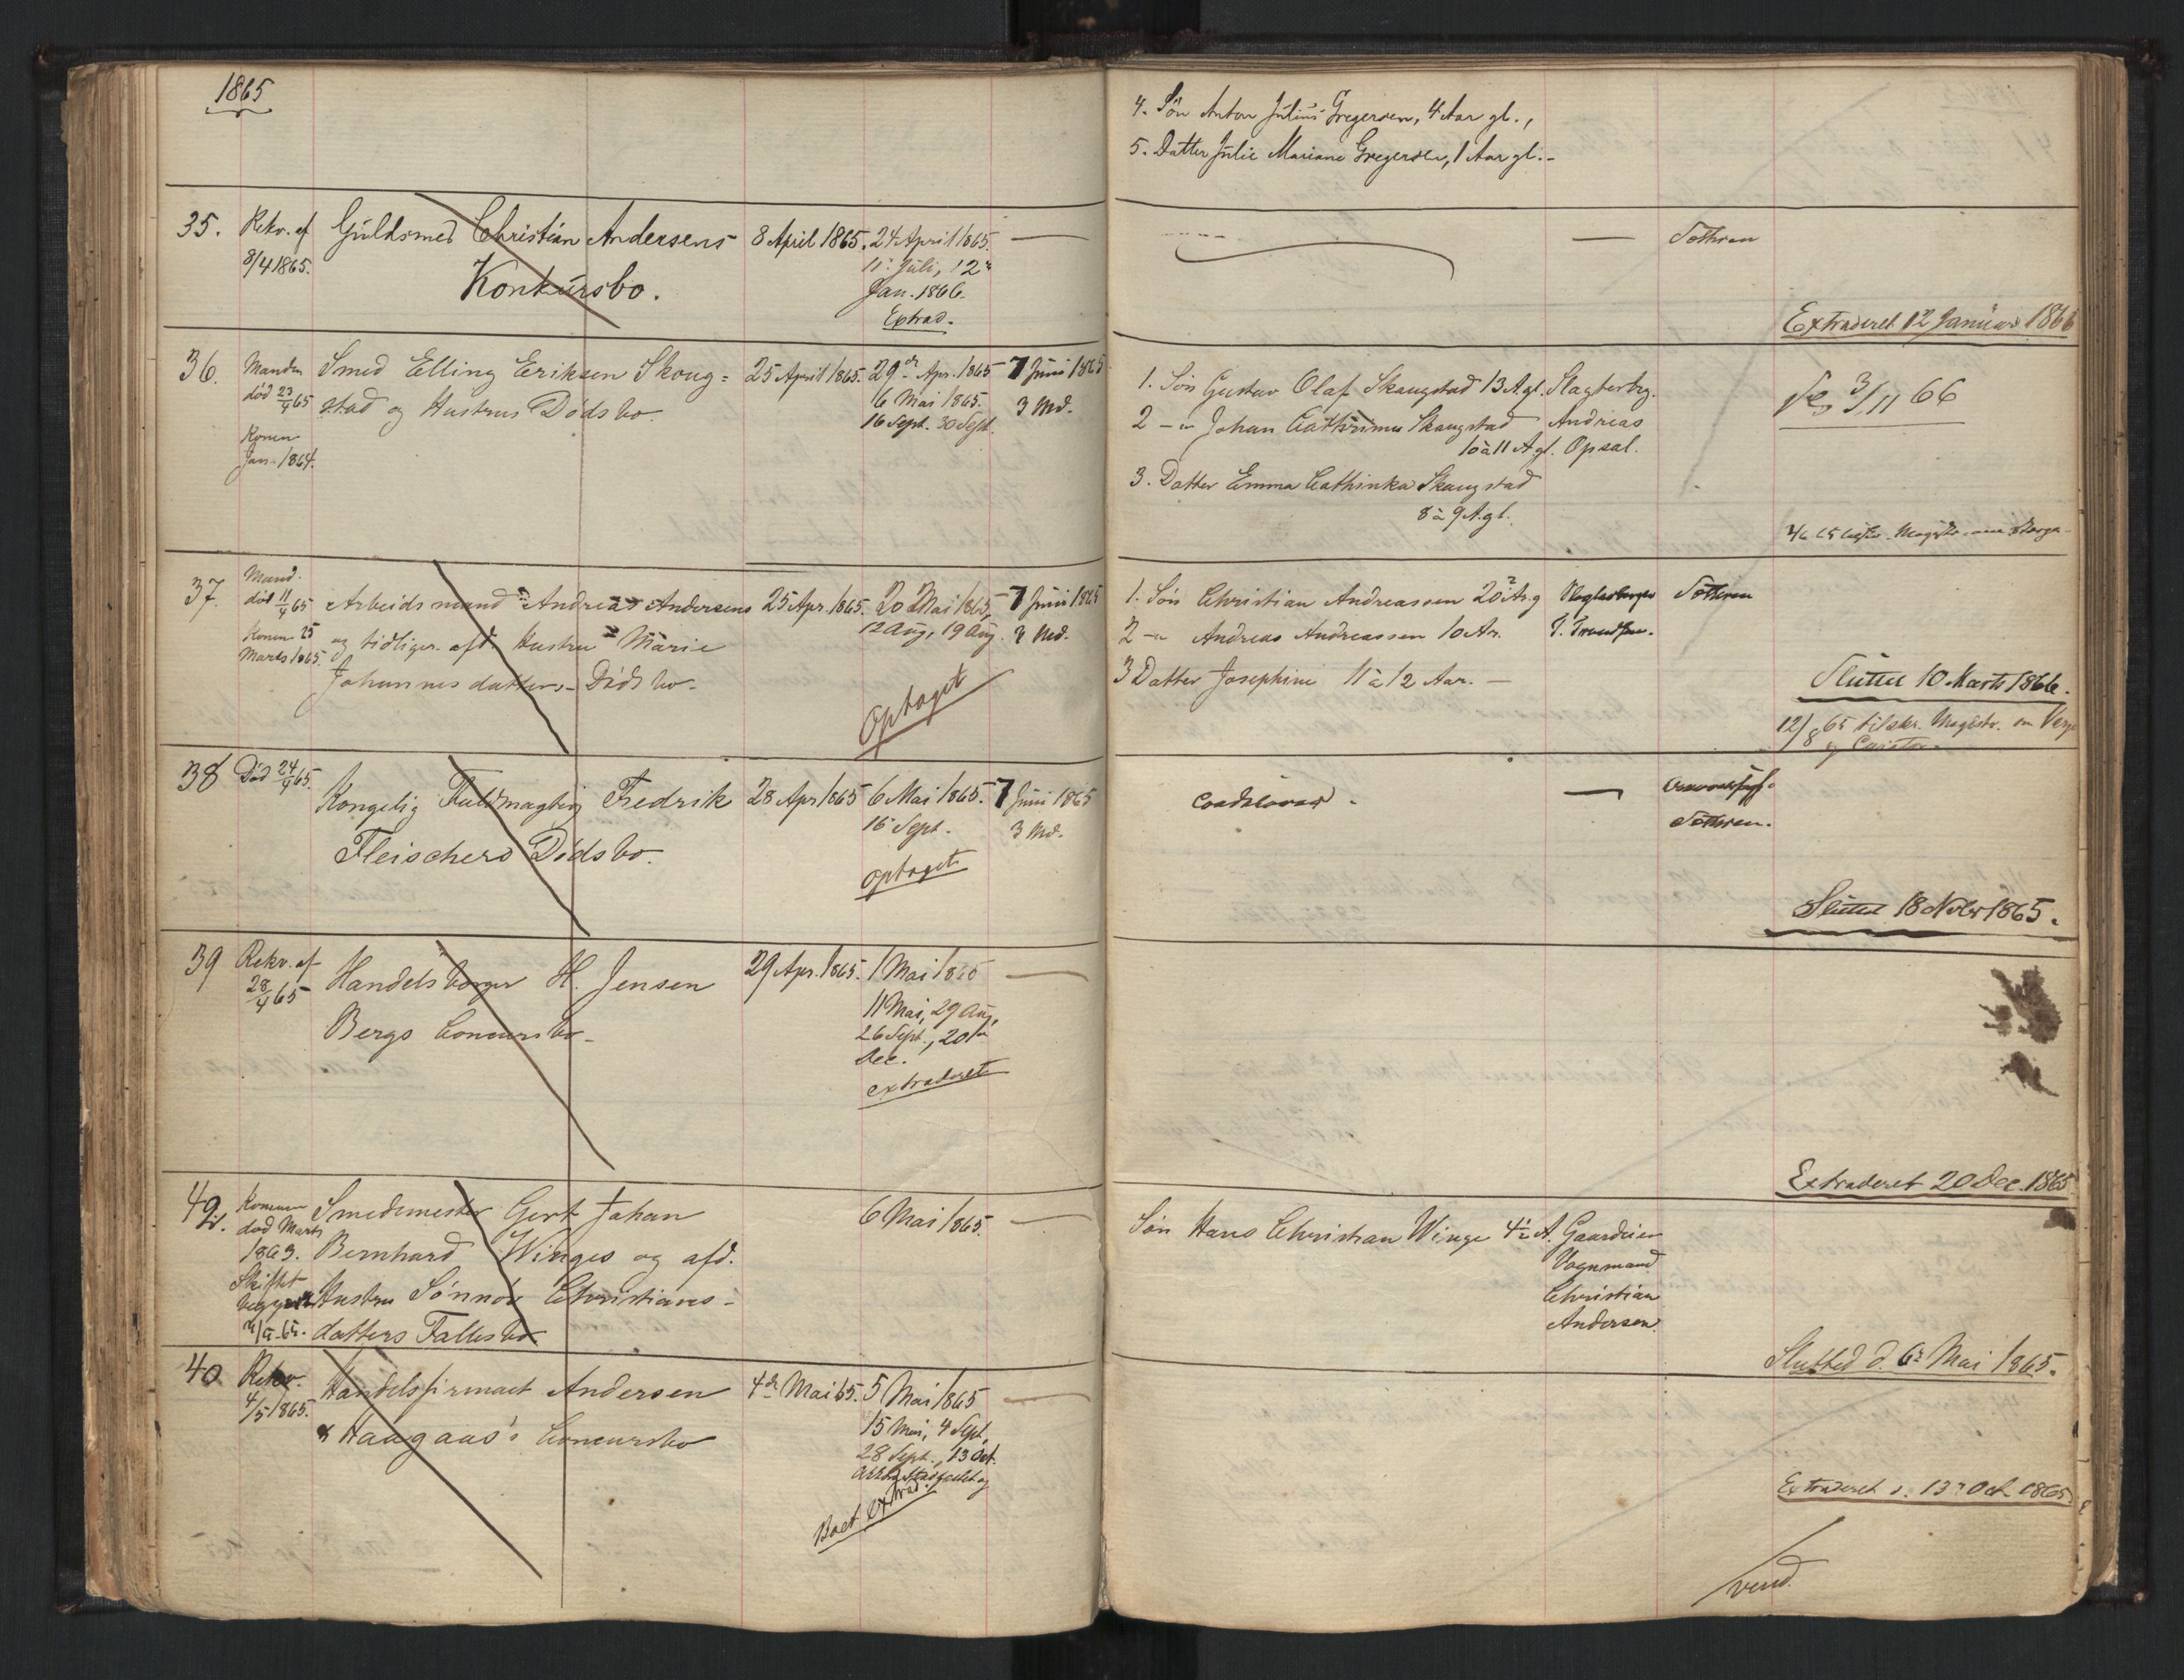 1865
35. Rekv. af Guldsmed Christian Andersens 8 April 1865. 24 April 1865. —
8/4 1865. Konkursbo. 11 Juli, 12
Jan. 1866.
Extrad.
36. Manden Smed Elling Eriksen Skoug= 25 April 1865. 29 Apr. 1865 7 Juni 1865
død 23/4 65 stad og Hustrus Dødsbo. 6 Mai 1865. 3 Md.
16 Sept. 30 Sept.
Konen
Jan. 1864.
37. Mand.
død 11/4 65 Arbeidsmand Andreas Andersens 25 Apr. 1865. 20 Mai 1865, 7 Juni 1865
Konen 25 og tidliger. afd. Hustru Marie 12 Aug, 19 Aug. 3 Md.
Marts 1865. Johannesdatters Dødsbo.
Optaget
38 Død 24/4 65. Kongelig Fuldmægtig Fredrik 28 Apr 1865 6 Mai 1865. 7 Juni 1865
Fleischers Dødsbo. 16 Sept. 3 Md.
optaget
39 Rekv. af Handelsborger H. Jensen 29 Apr. 1865. 1 Mai 1865 —
28/4 65 Bergs Concursbo 11 Mai, 29 Aug,
26 Sept., 20
Dec.
extraderet
Konen Smedemester Gert Johan 6 Mai 1865. —
død Marts
1863. Bernhard Winges og afd.
Skiftet Hustru Sønnøv Christians-
datters Fællesbo
40 Rekv. Handelsfirmaet Andersen 4de Mai 65. 5 Mai 1865 —
4/5 1865. & Haagaas's Concursbo 15 Mai, 4 Sept,
28 Sept., 13 Oct.
Boet Extrad.
4. Søn Anton Julius Gregersen, 4 Aar gl.,
5. Datter Julie Mariane Gregersen, 1 Aar gl. -
— Sothren
Extraderet 12 Januar 1866
1. Søn Gustav Olaf Skaugstad 13 A. gl. Slagterbg. 3/11 66
2 - Johan Skaugstad Andreas
10 à 11 A gl. Opsal.
3. Datter Emma Cathinka Skaugstad
8 à 9 A. gl.
1. Søn Christian Andreassen 20 Sothren
2 - Andreas Andreassen 10 Ar.
3 Datter Josephine 11 à 12 Aar. —
Sluttet 10 Marts 1866.
12/8 65 tilskr. Magistr. om Verge
og Curator
— Sothren.
Sluttet 18 Novbr 1865.
Extraderet 20 Dec. 1865
Søn Hans Christian Winge 4½ A. Gaardeier
Vognmand
Christian
Andersen
Slutted d. 6 Mai 1865.
Extraderet d. 13 Oct. 1865.
vend.